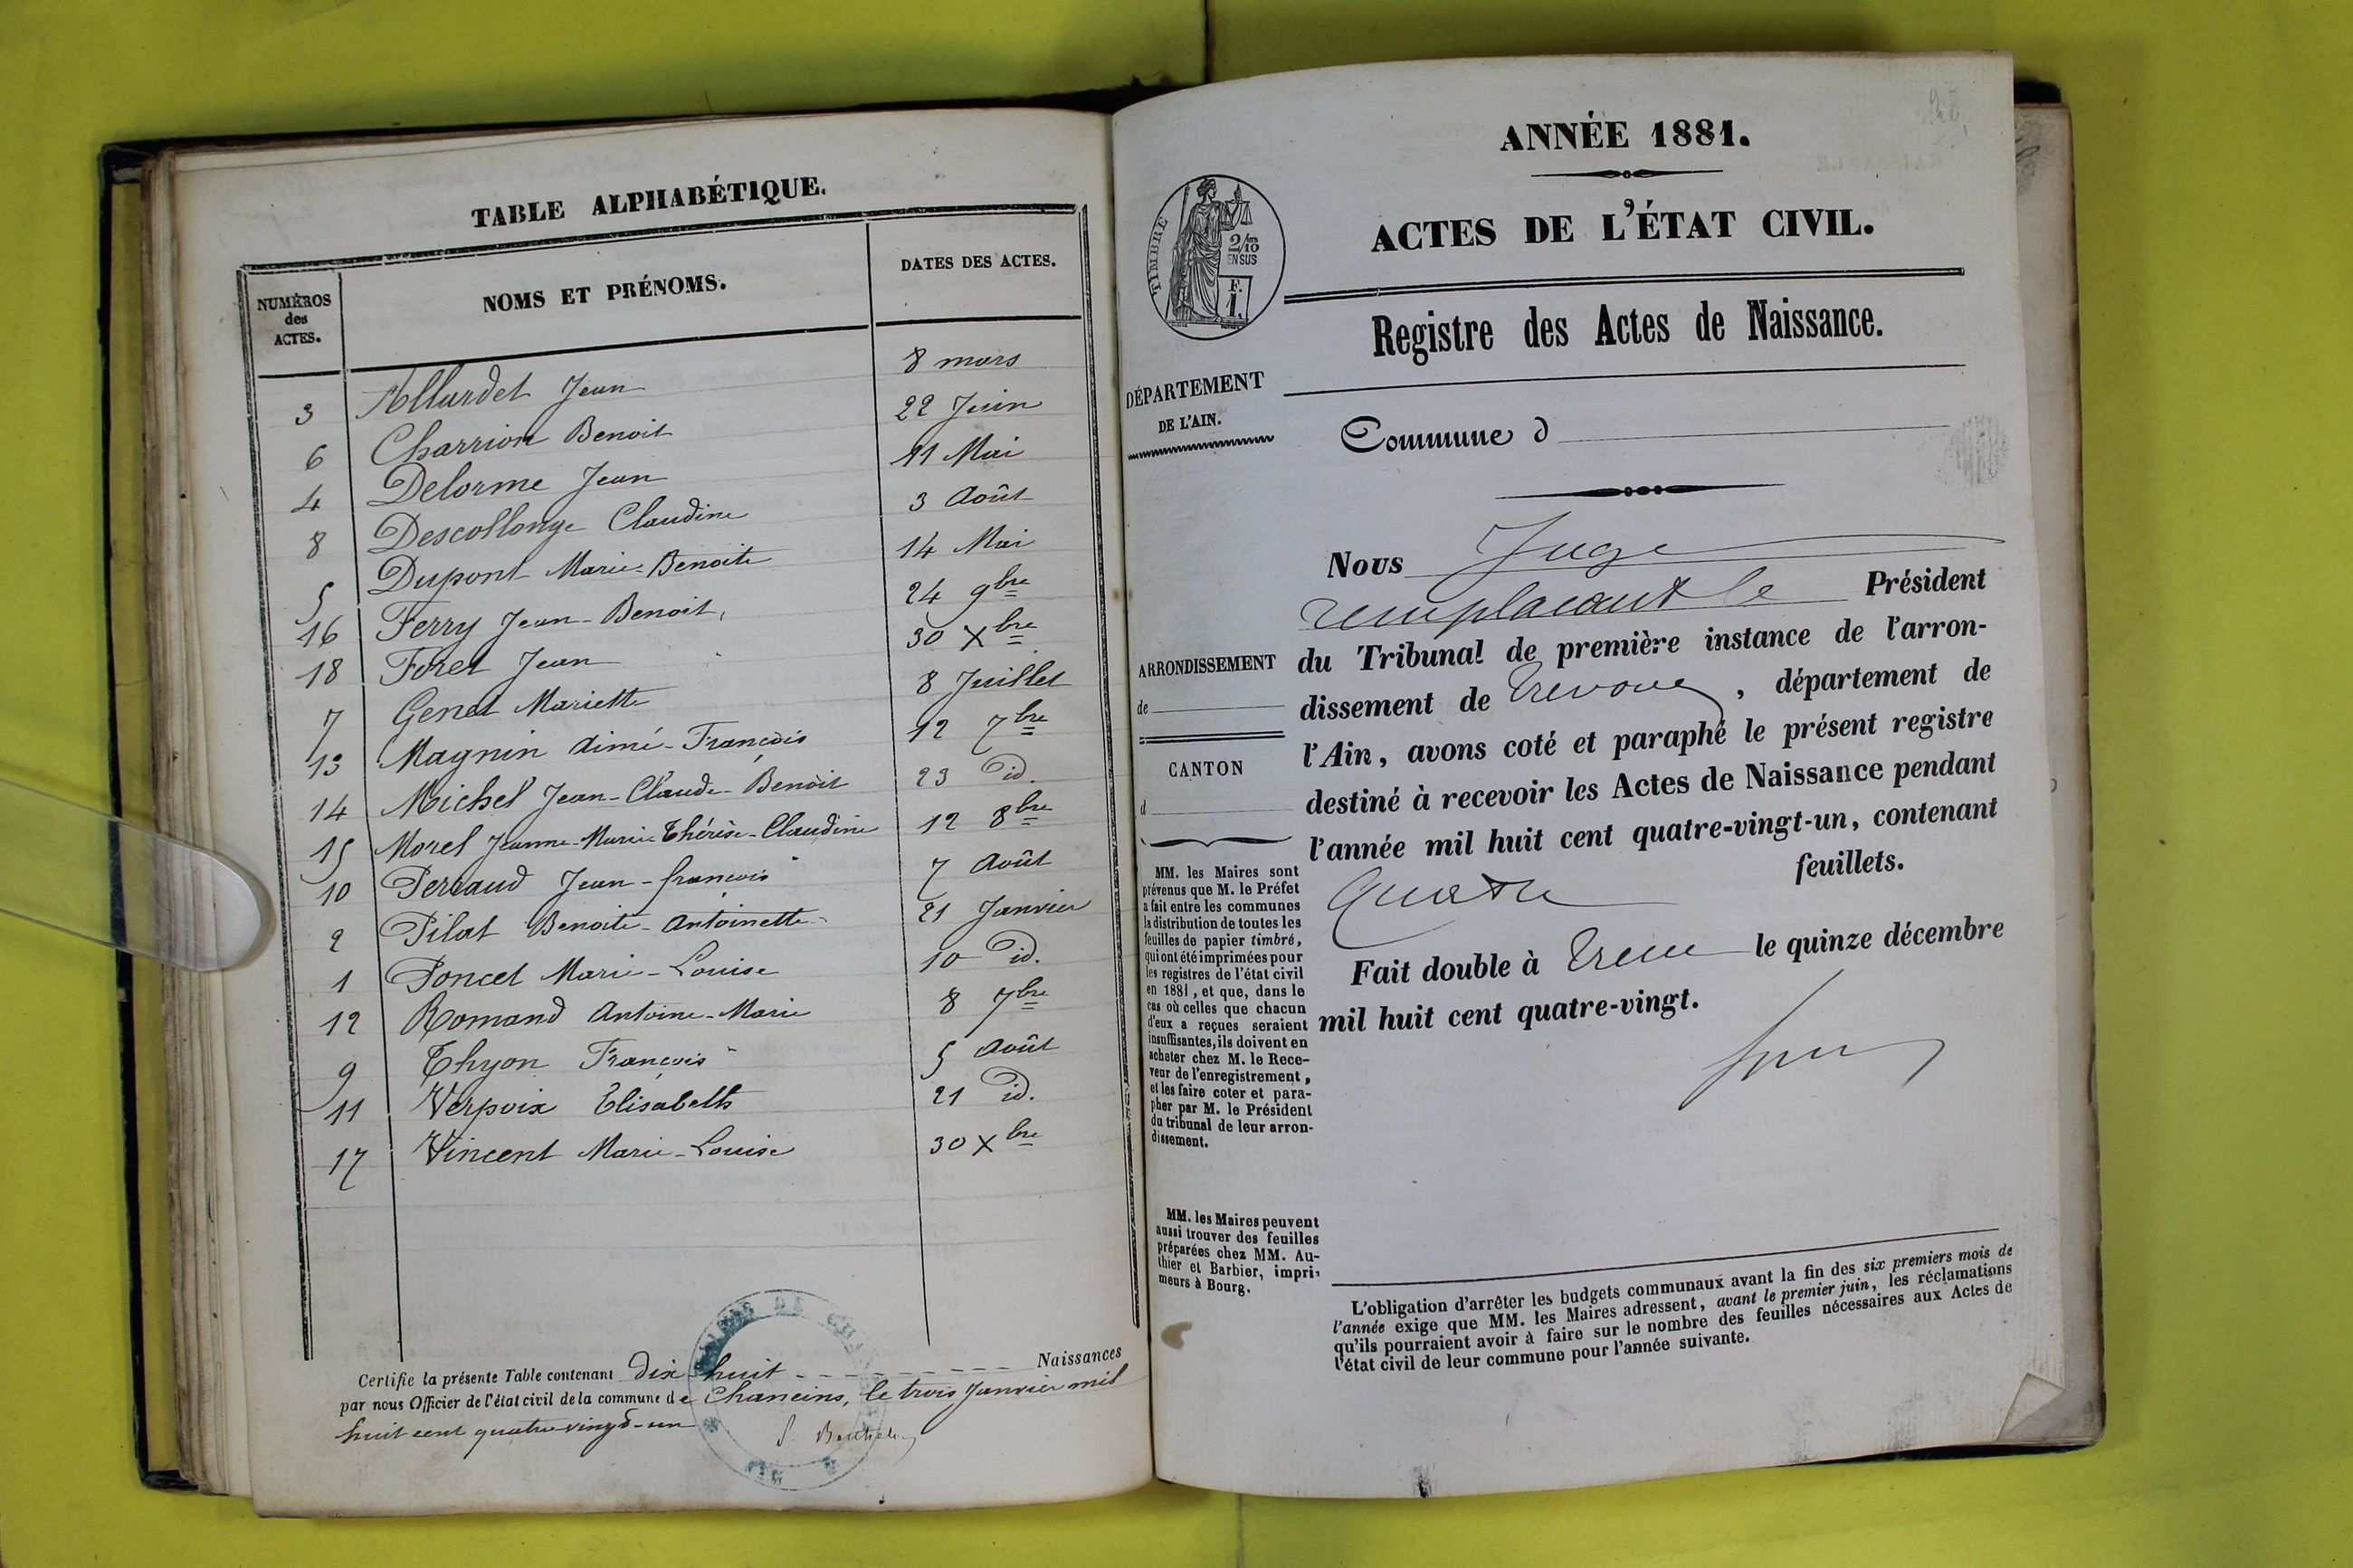 TABLE ALPHABÉTIQUE.
NUMÉROS des ACTES. NOMS ET PRÉNOMS. DATES DES ACTES.
3 Allurdet Jean 8 mars
6 Charrion Benoit 22 Juin
4 Delorme Jean 11 Mai
8 Descollonge Claudine 3 Août
5 Dupont Marie-Benoite 14 Mai
16 Ferry Jean-Benoit, 24 9bre
18 Foret Jean 30 Xbre
7 Genet Mariette 8 Juillet
13 Magnin Aimé-François 12 7bre
14 Michel Jean-Claude-Benoit 23 id.
15 Morel Jeanne-Marie-Thérèse-Claudine 12 8bre
10 Perraud Jean-françois 7 Août
2 Pilat Benoite-Antoinette 21 Janvier
1 Poncet Marie-Louise 10 id.
12 Romand Antoine-Marie 8 7bre
9 Thyon François 5 Août
11 Verpoix Elisabeth 21 id.
17 Vincent Marie-Louise 30 Xbre
Certifie la présente Table contenant dix huit Naissances
par nous Officier de l'état civil de la commune de Chaneins, le trois Janvier mil
huit cent quatre-vingt-un
MAIRIE DE
ANNÉE 1881.
ACTES DE L'ÉTAT CIVIL.
TIMBRE
2/10
EN SUS
F.
1.
Registre des Actes de Naissance.
DÉPARTEMENT
DE L'AIN.
Commune d
Nous Juge
remplacant le Président
du Tribunal de première instance de l'arron-
dissement de Trevoux, département de
l'Ain, avons coté et paraphé le présent registre
destiné à recevoir les Actes de Naissance pendant
l'année mil huit cent quatre-vingt-un, contenant
Quatre feuillets.
Fait double à le quinze décembre
mil huit cent quatre-vingt.
ARRONDISSEMENT
de
CANTON
d
MM. les Maires sont
prévenus que M. le Préfet
a fait entre les communes
la distribution de toutes les
feuilles de papier timbré,
qui ont été imprimées pour
les registres de l'état civil
en 1881, et que, dans le
cas où celles que chacun
d'eux a reçues seraient
insuffisantes, ils doivent en
acheter chez M. le Rece-
veur de l'enregistrement,
et les faire coter et para-
pher par M. le Président
du tribunal de leur arron-
dissement.
MM. les Maires peuvent
aussi trouver des feuilles
préparées chez MM. Au-
thier et Barbier, impri-
meurs à Bourg.
L'obligation d'arrêter les budgets communaux avant la fin des six premiers mois de
l'année exige que MM. les Maires adressent, avant le premier juin, les réclamations
qu'ils pourraient avoir à faire sur le nombre des feuilles nécessaires aux Actes de
l'état civil de leur commune pour l'année suivante.